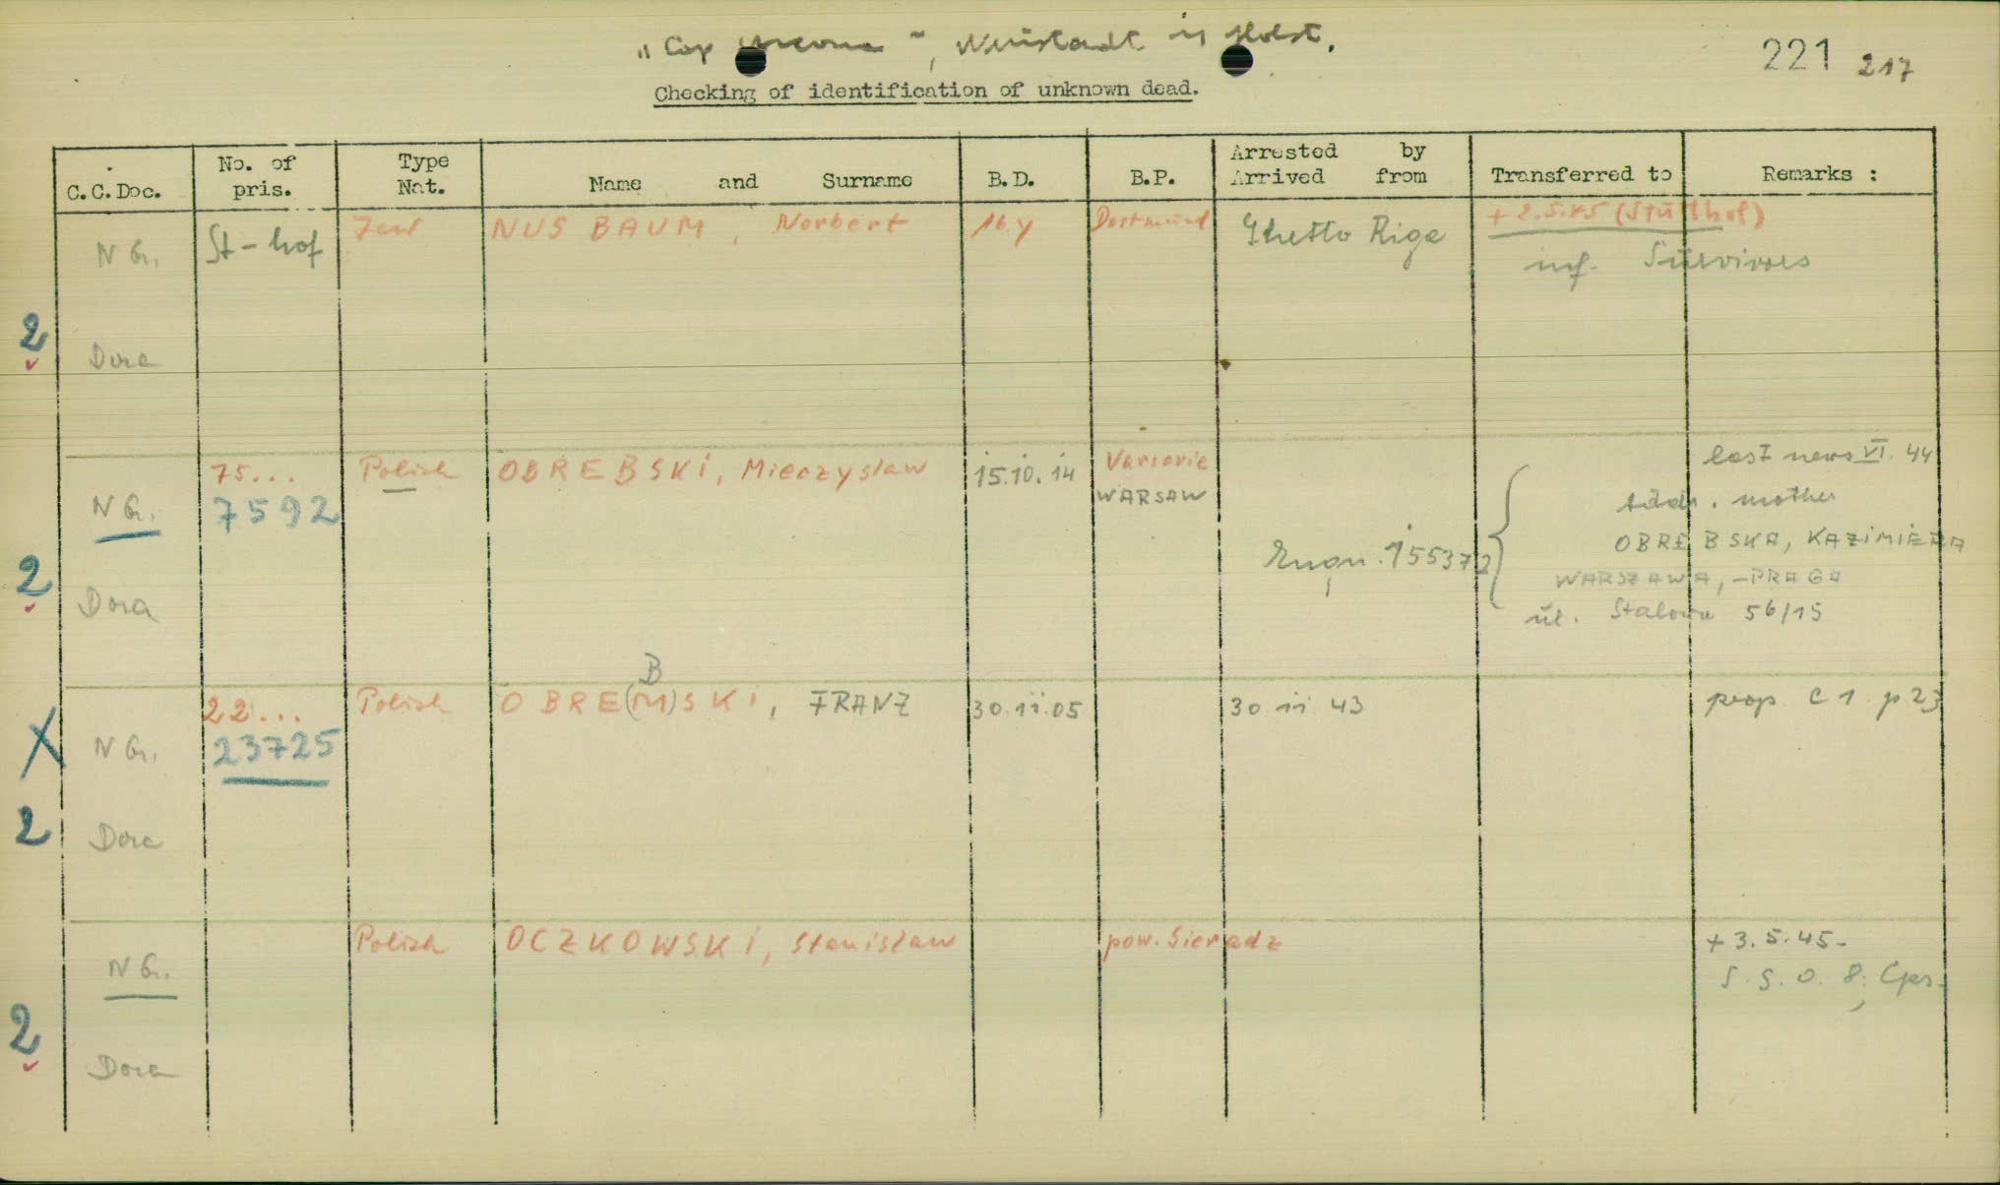 „Cap Arcona", Neustadt in Holst.
221 217
Checking of identification of unknown dead.
C.C.Doc. No. of pris. Type Nat. Name and Surname B.D. B.P. Arrested by Arrived from Transferred to Remarks :
N G. St-hof Jew NUSBAUM, Norbert 16 y Dortmund Ghetto Riga + 2.5.45 (Stutthof)
inf. Survivors
2
Dora
75... Polish OBREBSKI, Mieczyslaw 15.10.14 Varsovie last news VI. 44
N G. 7592 WARSAW Addr. mother
OBREBSKA, KAZIMIERA
Enqu. 155372
WARSZAWA, -PRAGA
2 Dora ul. Stalowa 56/15
B
22... Polish OBRE(M)SKI, FRANZ 30.11.05 30 11 43 prop C 1. p 23
X N G. 23725
2 Dora
Polish OCZKOWSKI, Stanislaw pow. Sieradz + 3.5.45-
N G. S.S.O. 8;
2
Dora